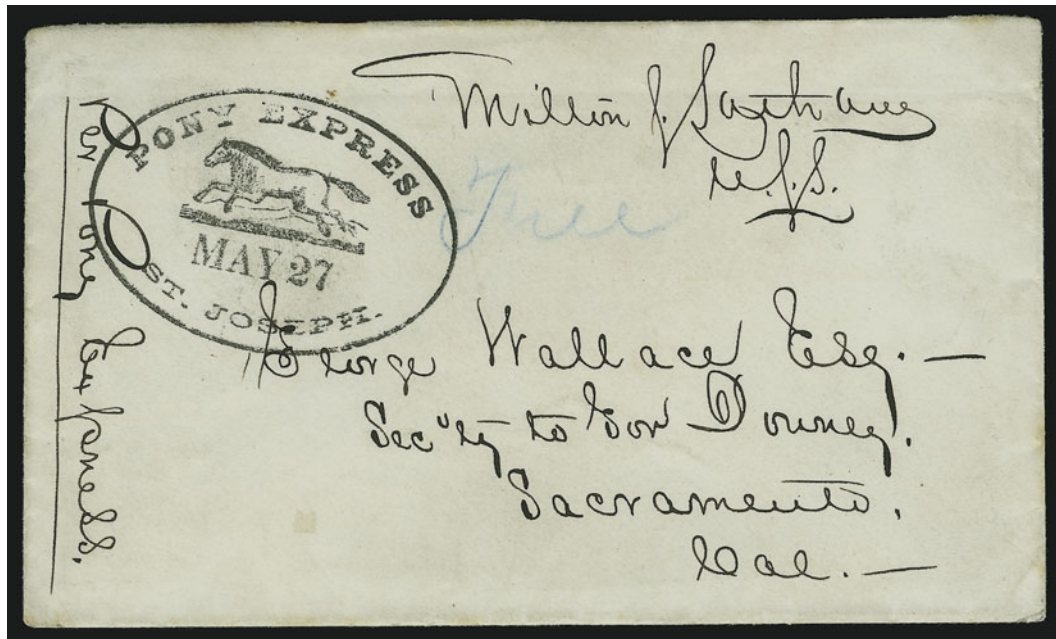 Per Pony Express.
PONY EXPRESS
MAY 27
ST. JOSEPH.
Milton S. Latham
U.S.S.
Free
George Wallace Esq. —
Sec'ty to Gov Downey.
Sacramento.
Cal. —